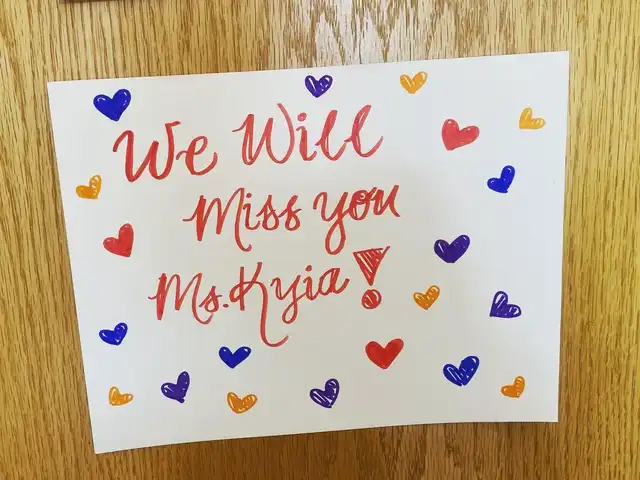 We Will
Miss you
Ms. Kyia!